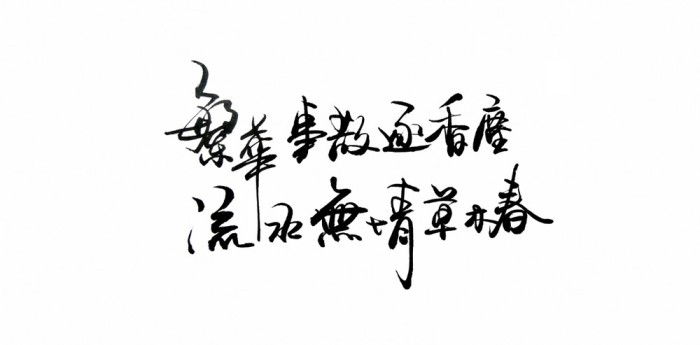 繁華事散逐香塵
流水無情草自春